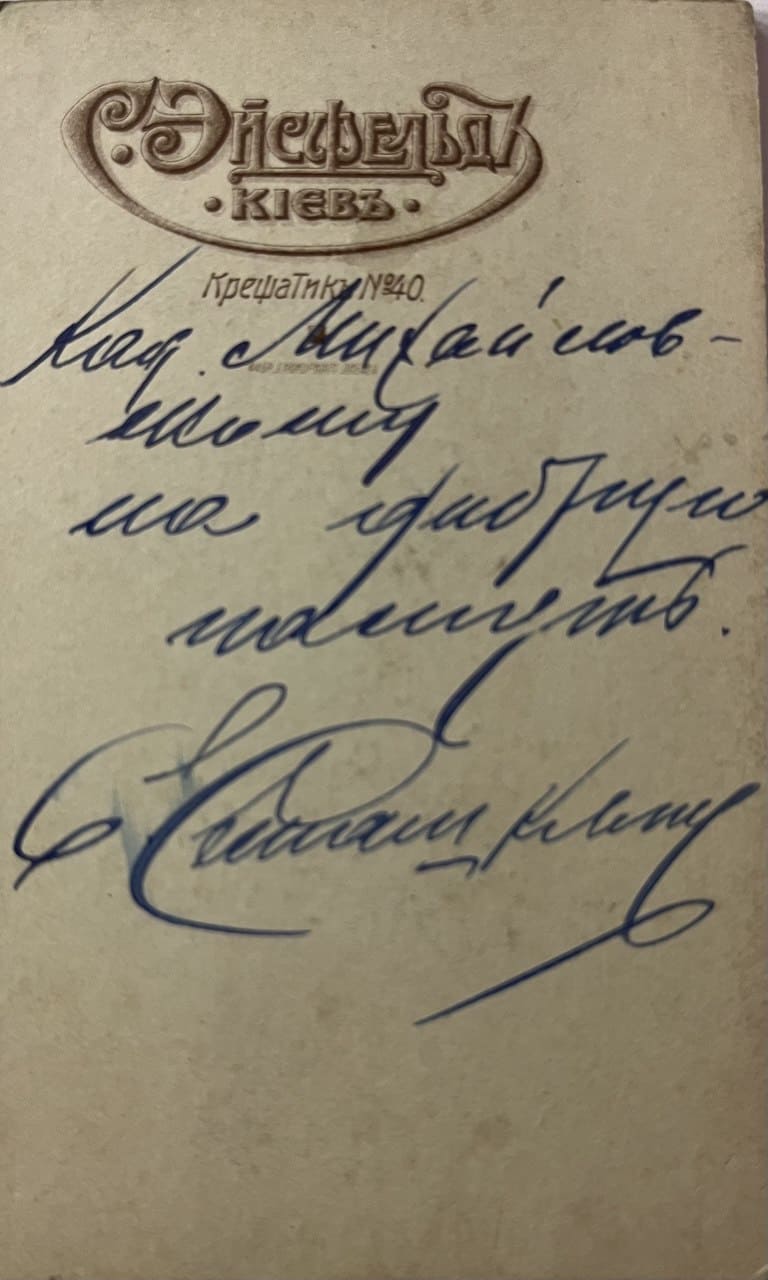 С. Эйсфельдъ
• КІЕВЪ •
Крещатикъ №40.
Кад. Михайлов-
скому
на добрую
память.